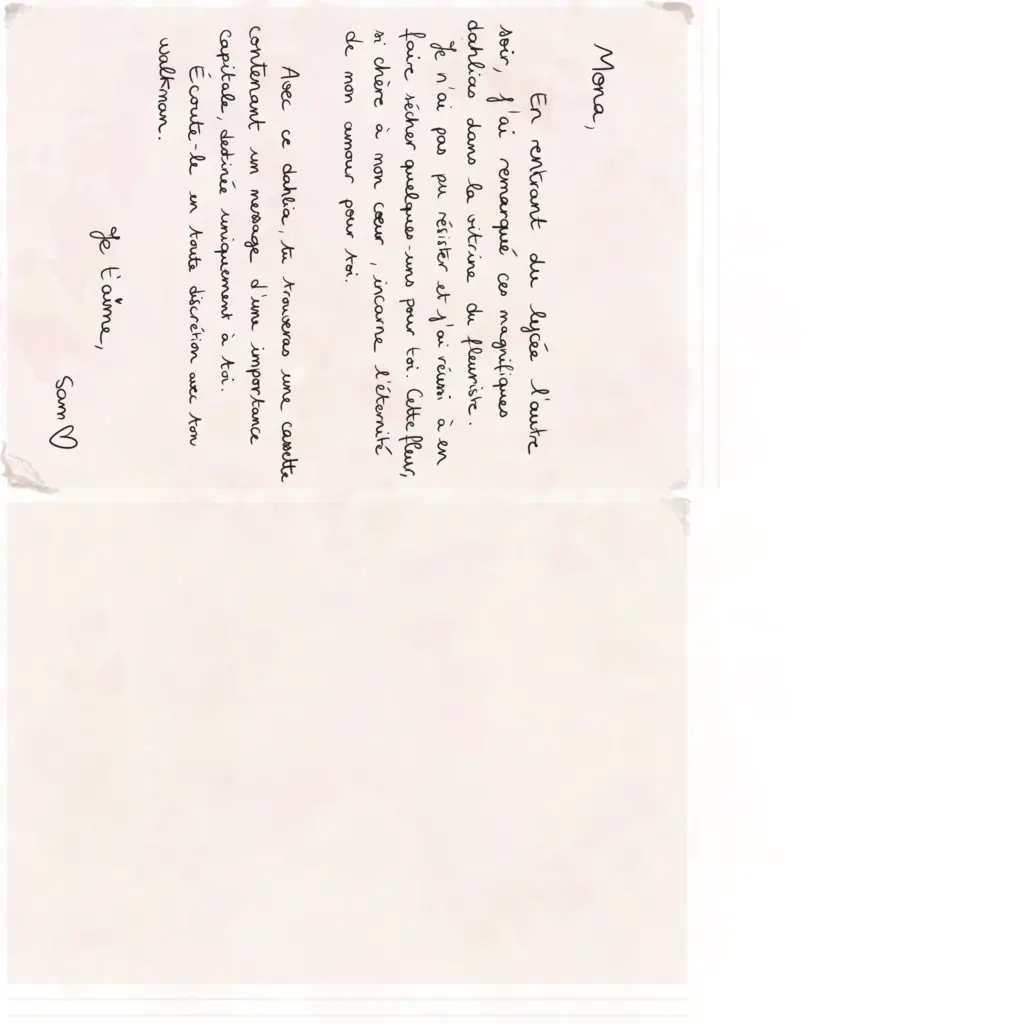 Mona,
En rentrant du lycée l'autre
soir, j'ai remarqué ces magnifiques
dahlias dans la vitrine du fleuriste.
Je n'ai pas pu résister et j'ai réussi à en
faire sécher quelques-uns pour toi. Cette fleur,
si chère à mon cœur, incarne l'éternité
de mon amour pour toi.
Avec ce dahlia, tu trouveras une cassette
contenant un message d'une importance
capitale, destinée uniquement à toi.
Écoute-le en toute discrétion avec ton
walkman.
Je t'aime,
Sam ♡